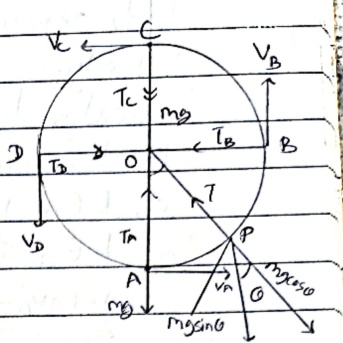 C
Vc
VB
Tc
mg
TB
D
TD
O
B
T
VD
TA
P
A
VA
mgcosθ
θ
mg
mgsinθ